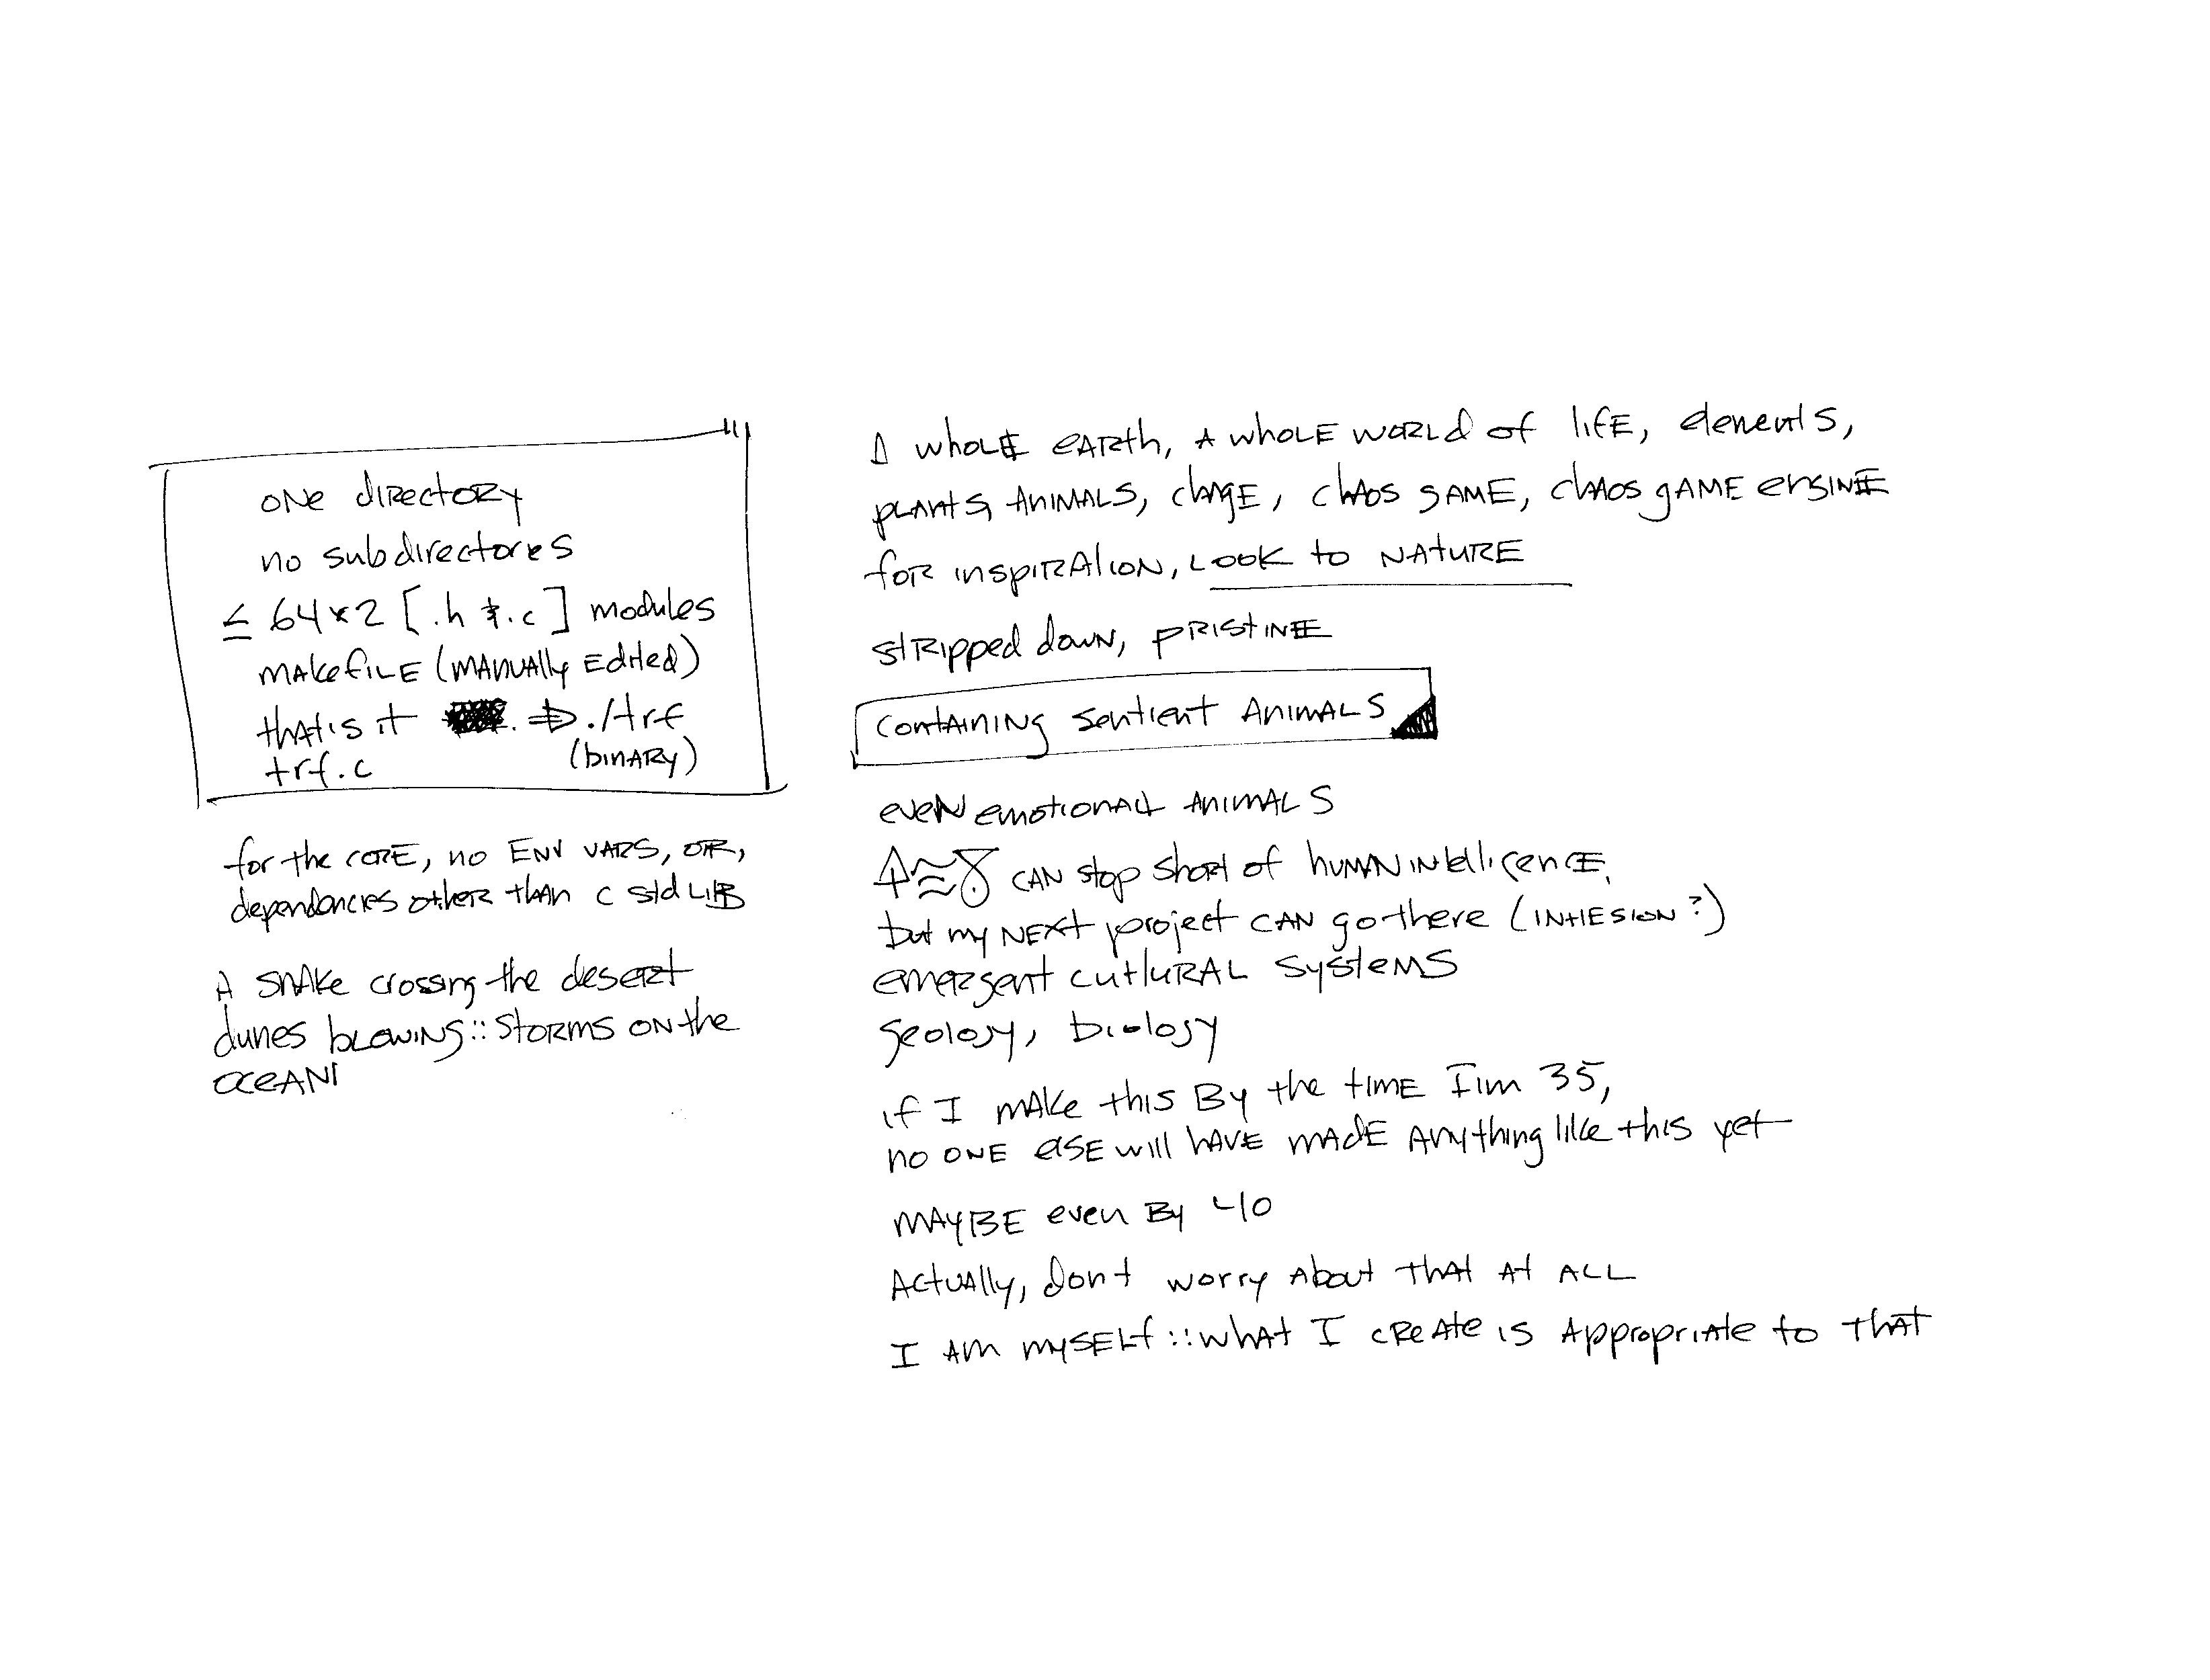 one directory
no subdirectores
≤ 64x2 [.h & .c] modules
makefile (manually edited)
that's it ⇒ ./trf
trf.c (binary)
for the core, no ENV VARS, or,
dependancies other than c std LIB
A snake crossing the desert
dunes blowing :: storms on the
ocean
A whole earth, a whole world of life, elements,
plants, animals, chage, chaos game, chaos game engine
for inspiration, look to nature
stripped down, pristine
containing sentient animals
even emotional animals
can stop short of human intelligence,
but my next project can go there (INTIESION?)
emergent cutlural systems
geology, biology
if I make this by the time I'm 35,
no one else will have made anything like this yet
maybe even by 40
Actually, don't worry about that at all
I am myself :: what I create is appropriate to that